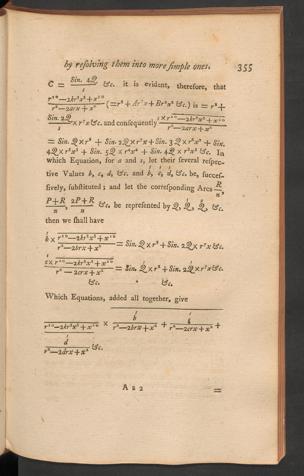 by resolving them into more simple ones. 355
C = Sin. 4Q/s &c. it is evident, therefore, that
r¹⁰—2kr⁵x⁵+x¹⁰ / r²—2arx+x² (=r⁸+Ar⁷x+Br⁶x² &c.) is = r⁸+
Sin. 2Q/s ×r⁷x &c. and consequently s×r¹⁰—2kr⁵x⁵+x¹⁰ / r²—2arx+x²
= Sin. Q×r⁸ + Sin. 2Q×r⁷x+ Sin. 3Q×r⁶x² + Sin.
4Q×r⁵x³ + Sin. 5Q×r⁴x⁴ + Sin. 4Q×r³x⁵ &c. In
which Equation, for a and s, let their several respec-
tive Values b, c, d, &c. and b́, ć, d́, &c. be, succes-
sively, substituted; and let the corresponding Arcs R/n,
P+R/n, 2P+R/n &c. be represented by Q, Q, Q, &c.
then we shall have
b́ × r¹⁰—2kr⁵x⁵+x¹⁰ / r²—2brx+x² = Sin. Q×r⁸+Sin. 2Q×r⁷x &c.
ć×r¹⁰—2kr⁵x⁵+x¹⁰ / r²—2crx+x² = Sin. Q×r⁸+ Sin. 2Q×r⁷x &c.
&c. &c.
Which Equations, added all together, give
r¹⁰—2kr⁵x⁵+x¹⁰ × b́ / r²—2brx+x² + ć / r²—2crx+x² +
d́ / r²—2drx+x² &c.
A a 2 =